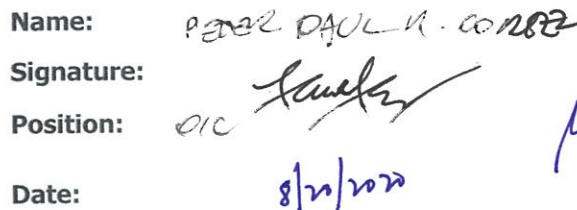 Name: PETER PAUL R.
Signature:
Position: OIC
Date: 8/20/2020